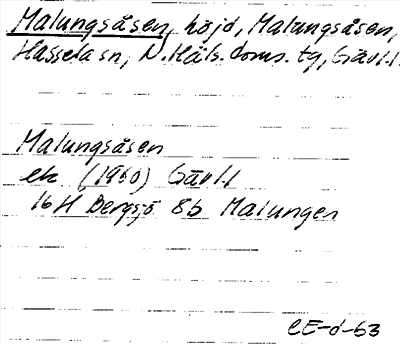 Malungsåsen, höjd, Malungsåsen,
Hassela sn, N. Häls. doms. tg, Gävl. l
Malungsåsen
ek (1960) Gävl. l
16H Bergsjö 8b Malungen
CE-d-63